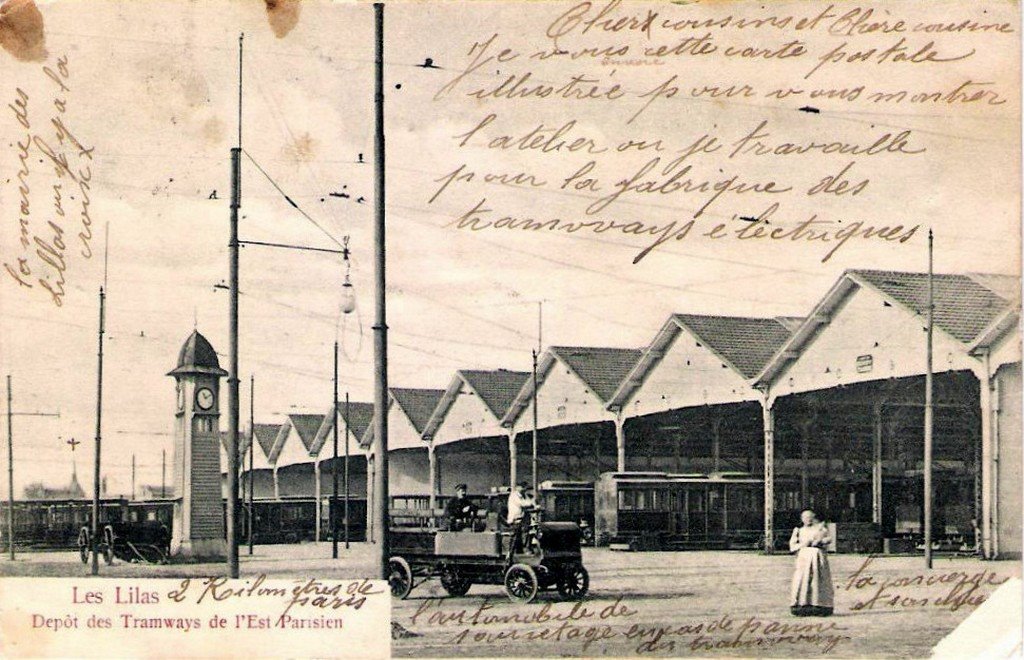 Chers cousins et Chère cousine
Je vous envoie cette carte postale
illustrée pour vous montrer
l'atelier ou je travaille
pour la fabrique des
tramways électriques
la mairie des
Lillas où il y a la
croix X
Les Lilas 2 Kilomètres de
paris
Depôt des Tramways de l'Est Parisien
l'automobile de
en cas de panne
du tramway
la concierge
et son